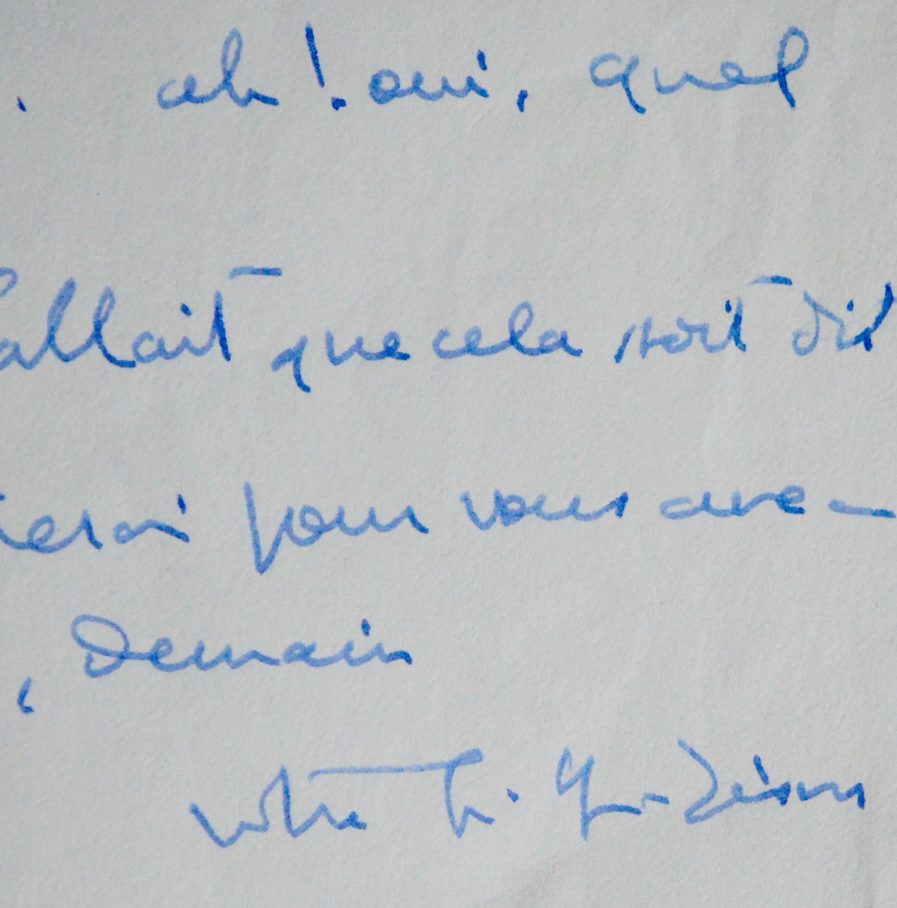 . ah ! oui, quel
fallait que cela soit dit
pour vous avec
, Demain
votre